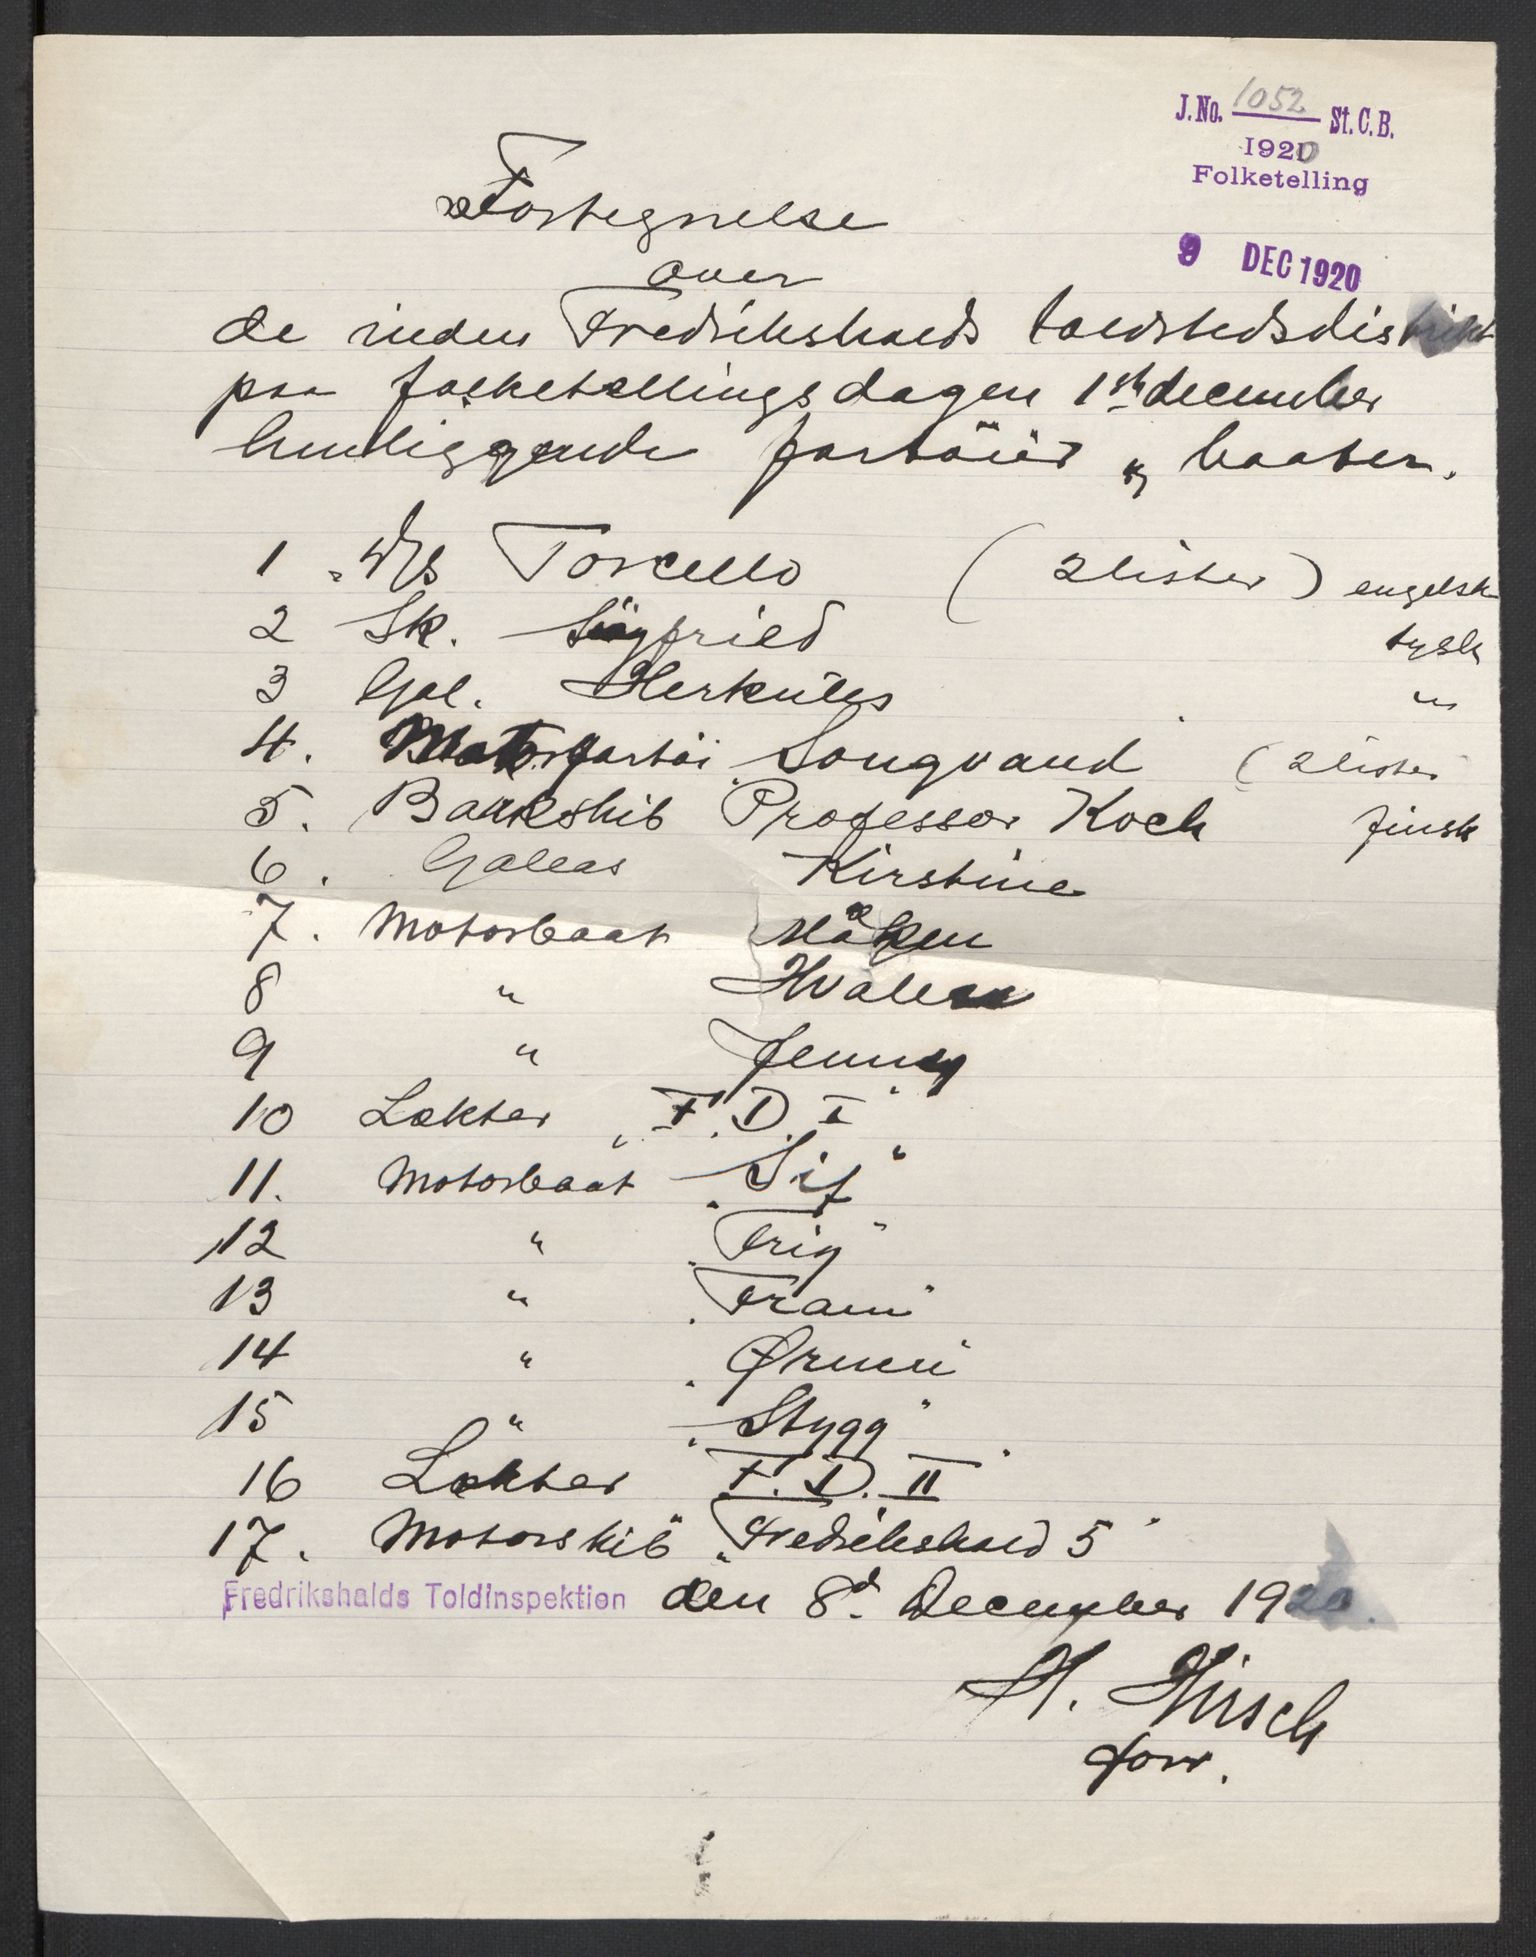 J. No. 1052 St. C. B.
1920
Folketelling
9 DEC 1920
Fortegnelse
over
de inden Fredrikshalds toldstedsdistrikt
paa folketellingsdagen 1ste december
henliggende fartöier og baater.
1 D/S Torcello (2 lister) engelsk
2 Sk. Siegfried tysk
3 Gal. Herkules "
4. Motorfartöi Songvand (2 lister
5. Barkskib Professor Koch finsk
6. Galeas Kirstine
7. Motorbaat Måken
8 " Hvalen
9 " Jenny
10 Lekter "F. D. I"
11. Motorbaat "Sif"
12 " "Trig"
13 " "Fram"
14 " "Ørnen"
15 " "Stygg"
16 Lekter F. D. II"
17. Motorskib "Fredrikshald 5"
Fredrikshalds Toldinspektion den 8d December 1920.
H. Hirsch
forv.